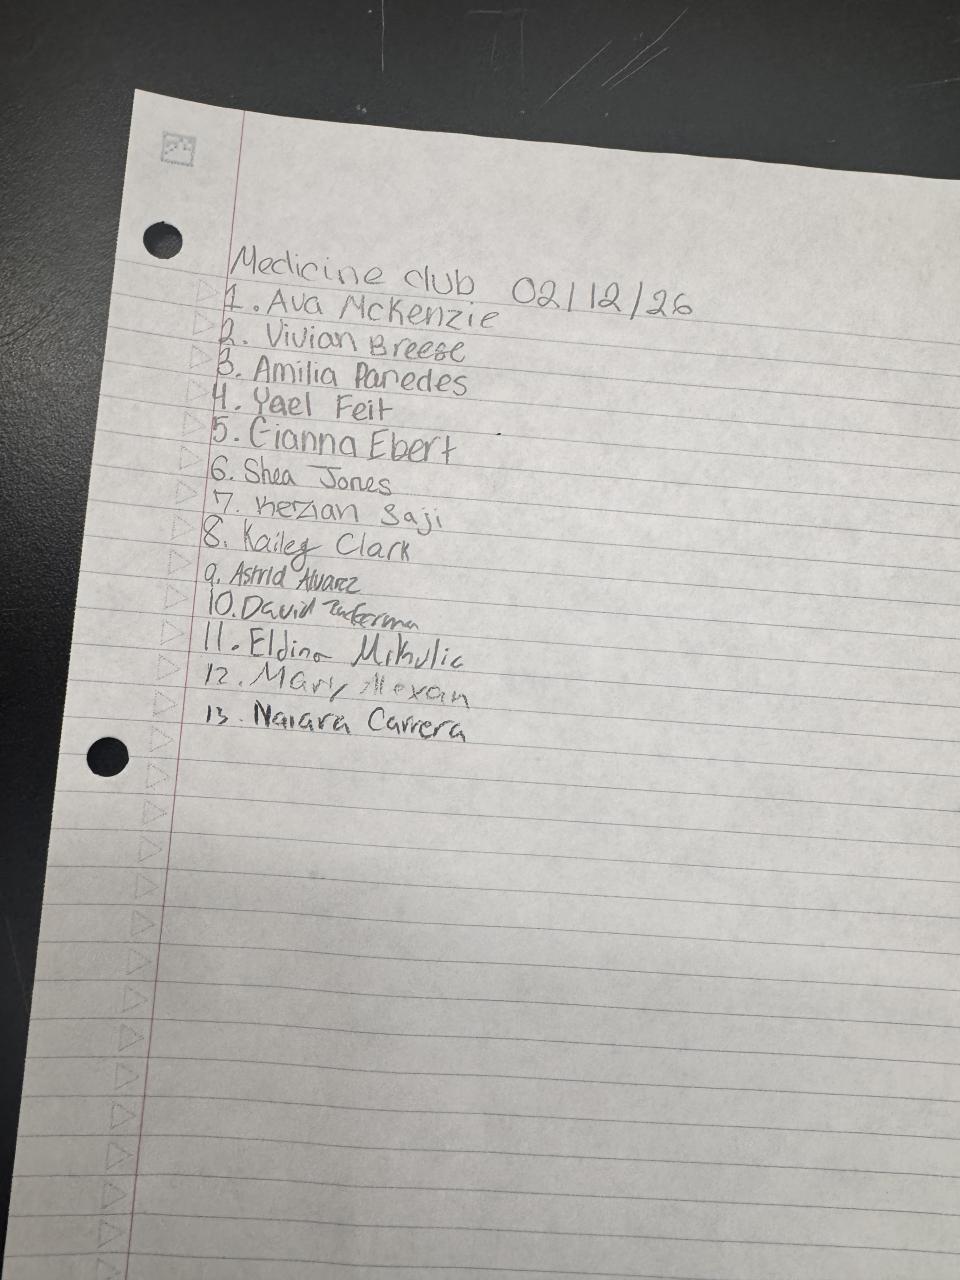 Medicine club 02/12/26
1. Ava McKenzie
2. Vivian Breese
3. Amilia Paredes
4. Yael Feit
5. Gianna Ebert
6. Shea Jones
7. Kezian Saji
8. Kailey Clark
9. Astrid Alvarez
10. David
11. Eldina Mikulic
12. Mary
13. Naiara Carrera